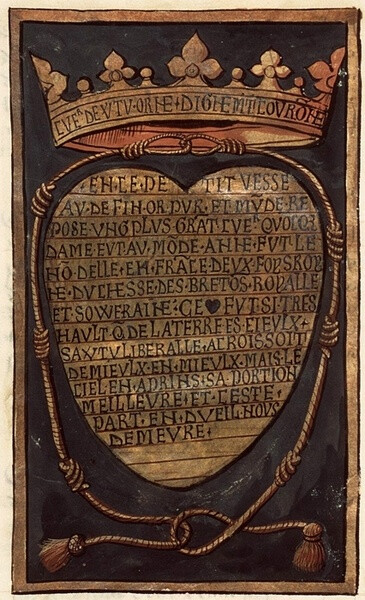 CVEᴿ DE VTVORNE DIGNEMᵀ COVRONE
EN CE PETIT VESSE
AV DE FIN OR PVR ET MVDE RE
POSE VNG PLVS GRAT CVEᴿ QVOCQ
DAME EVT AV MODE ANNE FVT LE
NO DELLE EN FRACE DEVX FOYS ROY
NE DVCHESSE DES BRETOS ROYALLE
ET SOWERAINE CE ♥ FVT SI TRES
HAVLT Q DE LA TERRE ES CIEVLX
SA VTV LIBERALLE ACROISSOIT
DE MIEVLX EN MIEVLX MAIS LE
CIEL EN A PRINS SA PORTION
MEILLEVRE ET CESTE
PART EN DVEIL NOVS
DEMEVRE